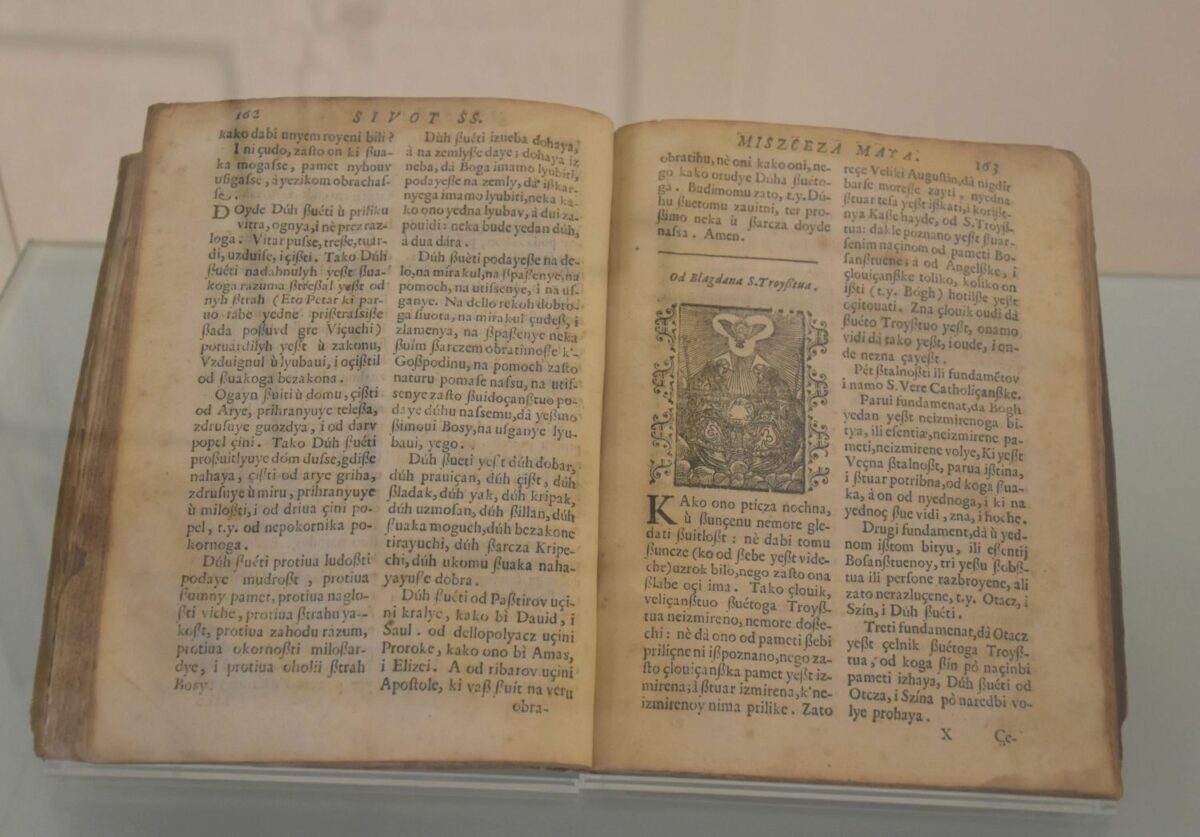 162
SIVOT SS.
kako dabi unyem royeni bili?
I ni çudo, zaſto on ki ßua-
ka mogaſſe, pamet nyhouv
uſigaſſe, à yezikom obrachaſ-
ſe.
DOyde Dúh ßuéti ù priliku
vitra, ognya, i nè prez raz-
loga. Vitar puſſe, treße, tuar-
di, uzduiſe, i çißti. Tako Dúh
ßuéti nadahnulyh yeßt ßua-
koga razuma ßtreßal yeßt od
nyh ßtrah (Eto Petar ki par-
uo rabe yedne prißtraſſiße
ßada poßuvd gre Viçuchi)
potuardilyh yeßt ù zakonu,
Vzduignul ù lyubaui, i oçißtil
od ßuakoga bezakona.
Ogayn ßuiti ù domu, çißti
od Arye, prihranyuye teleßa,
zdruſuye guozdya, i od darv
popel çini. Tako Dúh ßuéti
proßuitlyuye dom duſſe, gdiße
nahaya, çißti od arye griha,
zdruſuye ù miru, prihranyuye
ù miloßti, i od driua çini po-
pel, t.y. od nepokornika po-
kornoga.
Dúh ßuéti protiua ludoßti
podaye mudroßt, protiua
ſumny pamet, protiua naglo-
ßti viche, protiua ßtrahu ya-
koßt, protiua zahodu razum,
protiua okornoßti miloßar-
dye, i protiua oholii ßtrah
Boſy.
Dùh ßuéti izneba dohaya,
à na zemlyſe daye; dohaya iz
neba, dà Boga imamo lyubiti,
podayeſe na zemly, dà ißkar-
nyega imamo lyubiti, neka ka-
ko ono yedna lyubav, à dui za-
pouidi: neka bude yedan dúh,
à dua dára.
Dúh ßuéti podayeſe na de-
lo, na mirakul, na ßpaßenye, na
pomoch, na utiſſenye, i na uſ-
ganye. Na dello rekoh dobro-
ga ſiuota, na mirakul çudeß, i
zlamenya, na ßpaßenye neka
ßuim ßarczem obratimoſe k'
Goßpodinu, na pomoch zaſto
naturu pomaſe naſſu, na utiſ-
ſenye zaſto ßuidoçanßtuo po-
daye dúhu naſſemu, dà yeßmo
ßimoui Boſy, na uſganye lyu-
baui, yego.
Dúh ßueti yeßt dúh dobar,
dúh prauiçan, dúh çißt, dúh
ßladak, dúh yak, dúh kripak,
dúh uzmoſan, dúh ßillan, dúh
ßuaka moguch, dúh bezakone
tirayuchi, dúh ßarcza Kripe-
chi, dúh ukomu ßuaka naha-
yayuſe dobra.
Dúh ßuéti od Paßtirov uçi-
ni kralye, kako bì Dauid, i
Saul. od dellopolyacz uçini
Proroke, kako ono bì Amas,
i Elizei. A od ribarov uçini
Apoſtole, ki vaß ßuit na veru
obra-
MISZÇEZA MAYA.
163
obratihu, nè oni kako oni, ne-
go kako orudye Dúha ßuéto-
ga. Budimomu zato, t.y. Dú-
hu ßuetomu zauitni, ter pro-
ßimo neka ù ßarcza doyde
naſſa. Amen.
Od Blagdana S.Troyßtua.
KAko ono pticza nochna,
ù ßunçenu nemore gle-
dati ßuitloßt: nè dabi tomu
ßuncze (ko od ßebe yeßt vide-
che) uzrok bilo, nego zaſto ona
ßlabe oçi ima. Tako çlouik,
veliçanßtuo ßuétoga Troyß-
tua neizmireno, nemore doße-
chi: nè dà ono od pameti ßebi
priliçne ni ißpoznano, nego za-
ſto çlouiçanßka pamet yeßt iz-
mirena; à ßtuar izmirena, k'ne-
izmirenoy nima prilike. Zato
reçe Veliki Auguſtin, dà nigdir
barſe moreße zayti, nyedna
ßtuar teſa yeßt ißkati, i korißt-
nya Kaße hayde, od S. Troyß-
tua: dakle poznano yeßt ßuar-
ſenim naçinom od pameti Bo-
ſanßtuene; à od Angelßke, i
çlouiçanßke toliko, koliko on
ißti (t.y. Bógh) hotilße yeßt
oçitouati. Zna çlouik oudi dà
ßuéto Troyßtuo yeßt, onamo
vidi dà tako yeßt, i oude, i on-
de nezna çayeßt.
Pét ßtalnoßti ili fundamẽtov
i namo S. Vere Catholiçanßke.
Parui fundament, dà Bógh
yedan yeßt neizmirenoga bi-
tya, ili eſentiæ, neizmirene pa-
meti, neizmirene volye, Ki yeßt
Veçna ßtalnoßt, parua ißtina,
i ßtuar potribna, od koga ßua-
ka, à on od nyednoga, i ki na
yednoç ßue vidi, zna, i hoche.
Drugi fundament, dà ù yed-
nom ißtom bityu, ili eſentij
Boſanßtuenoy, tri yeßu ßobß-
tua ili perſone razbroyene, ali
zato nerazluçene, t.y. Otacz, i
Szín, i Dúh ßuéti.
Treti fundamenat, dà Otacz
yeßt çelnik ßuétoga Troyß-
tua, od koga ßin pò naçinbi
pameti izhaya, Dúh ßuéti od
Otcza, i Szína pò naredbi vo-
lye prohaya.
X
Çe-